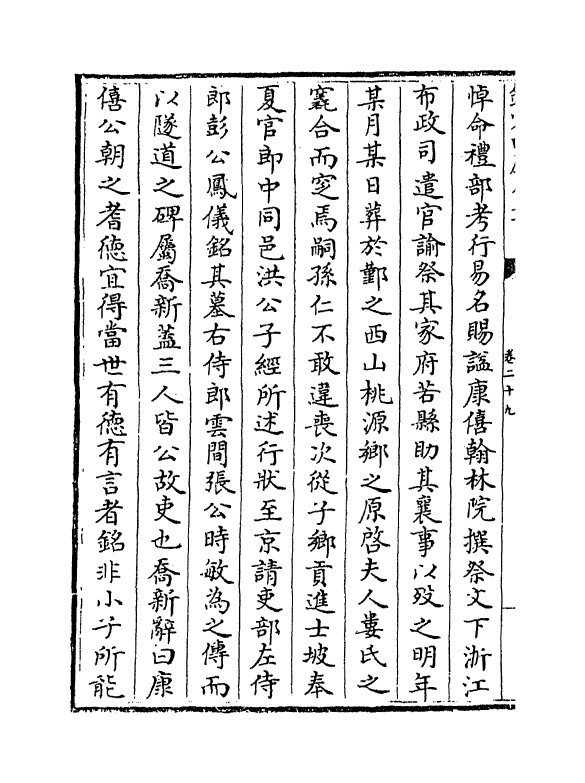 卷二十九
悼命禮部考行易名賜諡康僖翰林院撰祭文下浙江
布政司遣官諭祭其家府若縣助其襄事以歿之明年
某月某日葬於鄞之西山桃源鄉之原啓夫人婁氏之
窆合而窆焉嗣孫仁不敢違喪次從子鄉貢進士坡奉
夏官郎中同邑洪公子經所述行狀至京請吏部左侍
郎彭公鳳儀銘其墓右侍郎雲間張公時敏為之傳而
以隧道之碑屬喬新葢三人皆公故吏也喬新辭曰康
僖公朝之耆徳宜得當世有徳有言者銘非小子所能